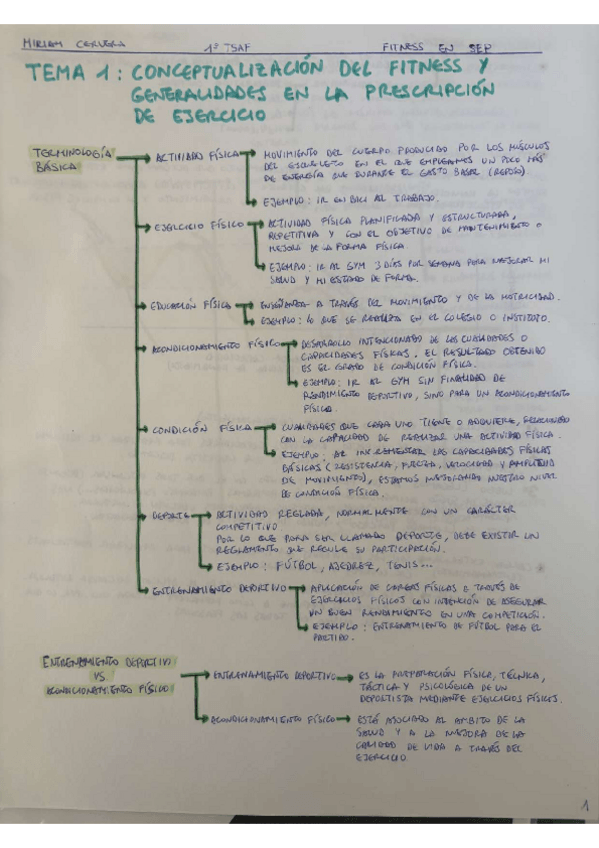 MIRIAM CERVERA 1º TSAF FITNESS EN SEP
TEMA 1: CONCEPTUALIZACIÓN DEL FITNESS Y
GENERALIDADES EN LA PRESCRIPCIÓN
DE EJERCICIO
TERMINOLOGÍA
BÁSICA
ACTIVIDAD FÍSICA
MOVIMIENTO DEL CUERPO PRODUCIDO POR LOS MÚSCULOS
DEL ESQUELETO EN EL QUE EMPLEAMOS UN POCO MÁS
DE ENERGÍA QUE DURANTE EL GASTO BASAL (REPOSO)
EJEMPLO: IR EN BICI AL TRABAJO.
EJERCICIO FÍSICO
ACTIVIDAD FÍSICA PLANIFICADA Y ESTRUCTURADA,
REPETITIVA Y CON EL OBJETIVO DE MANTENIMIENTO O
MEJORA DE LA FORMA FÍSICA.
EJEMPLO: IR AL GYM 3 DÍAS POR SEMANA PARA MEJORAR MI
SALUD Y MI ESTADO DE FORMA.
EDUCACIÓN FÍSICA
ENSEÑANZA A TRAVÉS DEL MOVIMIENTO Y DE LA MOTRICIDAD.
EJEMPLO: LO QUE SE REALIZA EN EL COLEGIO O INSTITUTO.
ACONDICIONAMIENTO FÍSICO
DESARROLLO INTENCIONADO DE LAS CUALIDADES O
CAPACIDADES FÍSICAS, EL RESULTADO OBTENIDO
ES EL GRADO DE CONDICIÓN FÍSICA.
EJEMPLO: IR AL GYM SIN FINALIDAD DE
RENDIMIENTO DEPORTIVO, SINO PARA UN ACONDICIONAMIENTO
FÍSICO.
CONDICIÓN FÍSICA
CUALIDADES QUE CADA UNO TIENE O ADQUIERE, RELACIONADO
CON LA CAPACIDAD DE REALIZAR UNA ACTIVIDAD FÍSICA.
EJEMPLO: AL INCREMENTAR LAS CAPACIDADES FÍSICAS
BÁSICAS (RESISTENCIA, FUERZA, VELOCIDAD Y AMPLITUD
DE MOVIMIENTO), ESTAMOS MEJORANDO NUESTRO NIVEL
DE CONDICIÓN FÍSICA.
DEPORTE
ACTIVIDAD REGLADA, NORMALMENTE CON UN CARÁCTER
COMPETITIVO.
POR LO QUE PARA SER LLAMADO DEPORTE, DEBE EXISTIR UN
REGLAMENTO QUE REGULE SU PARTICIPACIÓN.
EJEMPLO: FÚTBOL, AJEDREZ, TENIS...
ENTRENAMIENTO DEPORTIVO
APLICACIÓN DE CARGAS FÍSICAS A TRAVÉS DE
EJERCICIOS FÍSICOS CON INTENCIÓN DE ASEGURAR
UN BUEN RENDIMIENTO EN UNA COMPETICIÓN.
EJEMPLO: ENTRENAMIENTO DE FÚTBOL PARA EL
PARTIDO.
ENTRENAMIENTO DEPORTIVO
VS.
ACONDICIONAMIENTO FÍSICO
ENTRENAMIENTO DEPORTIVO
ES LA PREPARACIÓN FÍSICA, TÉCNICA,
TÁCTICA Y PSICOLÓGICA DE UN
DEPORTISTA MEDIANTE EJERCICIOS FÍSICOS.
ACONDICIONAMIENTO FÍSICO
ESTÁ ASOCIADO AL AMBITO DE LA
SALUD Y A LA MEJORA DE LA
CALIDAD DE VIDA A TRAVÉS DEL
EJERCICIO.
1